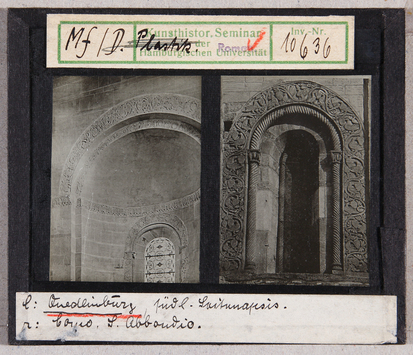 Mf/D. Plastik.
Kunsthistor. Seminar
der
Hamburgischen Universität
Roman
Inv.-Nr.
10636
l: Quedlinburg südl. Seitenapsis.
r: Como. S. Abbondio.